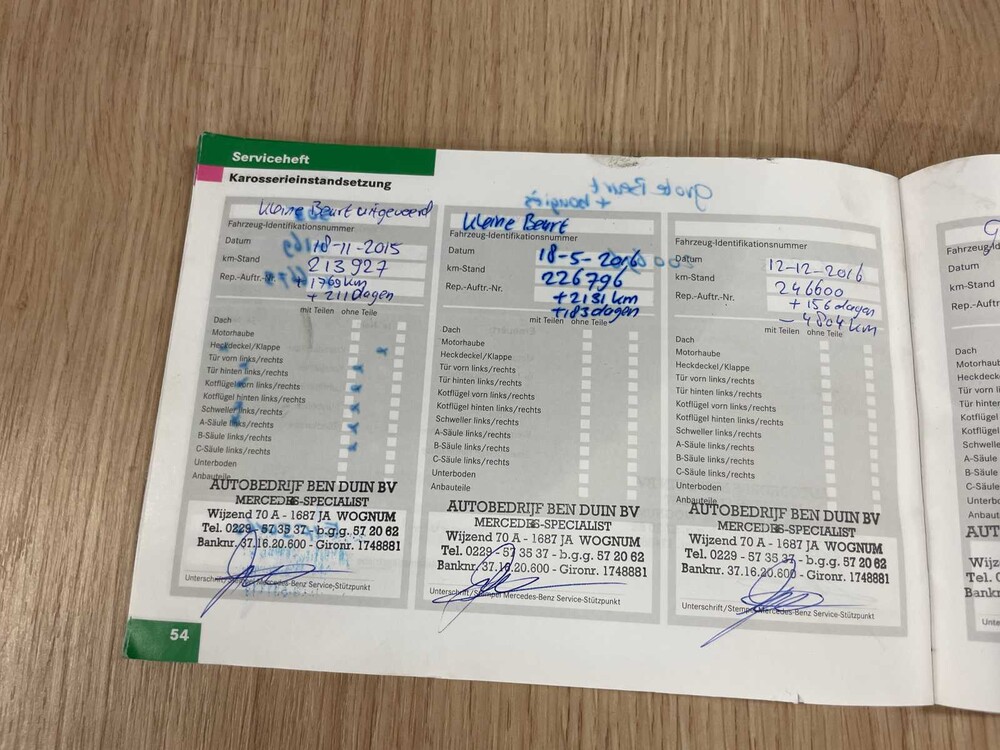 Serviceheft
Karosserieinstandsetzung
Kleine Beurt uitgevoerd
Fahrzeug-Identifikationsnummer
Datum 18-11-2015
km-Stand 213927
Rep.-Auftr.-Nr. + 1769 km
+ 211 dagen
mit Teilen ohne Teile
Dach
Motorhaube
Heckdeckel/Klappe
Tür vorn links/rechts
Tür hinten links/rechts
Kotflügel vorn links/rechts
Kotflügel hinten links/rechts
Schweller links/rechts
A-Säule links/rechts
B-Säule links/rechts
C-Säule links/rechts
Unterboden
Anbauteile
AUTOBEDRIJF BEN DUIN BV
MERCEDES-SPECIALIST
Wijzend 70 A - 1687 JA WOGNUM
Tel. 0229 - 57 35 37 - b.g.g. 57 20 62
Banknr. 37.16.20.600 - Gironr. 1748881
Unterschrift/Stempel Mercedes-Benz Service-Stützpunkt
54
Kleine Beurt
Fahrzeug-Identifikationsnummer
Datum 18-5-2016
km-Stand 226796
Rep.-Auftr.-Nr. + 2131 km
+ 183 dagen
mit Teilen ohne Teile
Dach
Motorhaube
Heckdeckel/Klappe
Tür vorn links/rechts
Tür hinten links/rechts
Kotflügel vorn links/rechts
Kotflügel hinten links/rechts
Schweller links/rechts
A-Säule links/rechts
B-Säule links/rechts
C-Säule links/rechts
Unterboden
Anbauteile
AUTOBEDRIJF BEN DUIN BV
MERCEDES-SPECIALIST
Wijzend 70 A - 1687 JA WOGNUM
Tel. 0229 - 57 35 37 - b.g.g. 57 20 62
Banknr. 37.16.20.600 - Gironr. 1748881
Unterschrift/Stempel Mercedes-Benz Service-Stützpunkt
grote Beurt
+ bougies
Fahrzeug-Identifikationsnummer
Datum 12-12-2016
km-Stand 246600
Rep.-Auftr.-Nr. + 156 dagen
- 4804 km
mit Teilen ohne Teile
Dach
Motorhaube
Heckdeckel/Klappe
Tür vorn links/rechts
Tür hinten links/rechts
Kotflügel vorn links/rechts
Kotflügel hinten links/rechts
Schweller links/rechts
A-Säule links/rechts
B-Säule links/rechts
C-Säule links/rechts
Unterboden
Anbauteile
AUTOBEDRIJF BEN DUIN BV
MERCEDES-SPECIALIST
Wijzend 70 A - 1687 JA WOGNUM
Tel. 0229 - 57 35 37 - b.g.g. 57 20 62
Banknr. 37.16.20.600 - Gironr. 1748881
Unterschrift/Stempel Mercedes-Benz Service-Stützpunkt
Datum
km-Stand
Rep.-Auftr.
Dach